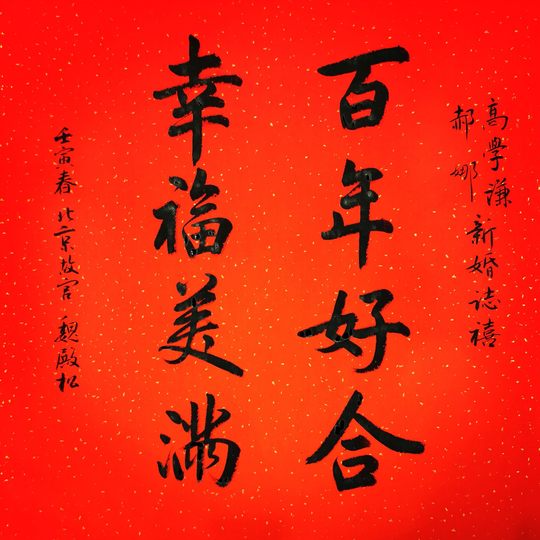 高學謙
郝娜
新婚誌禧
百年好合
幸福美滿
壬寅春北京故宮魏殿松